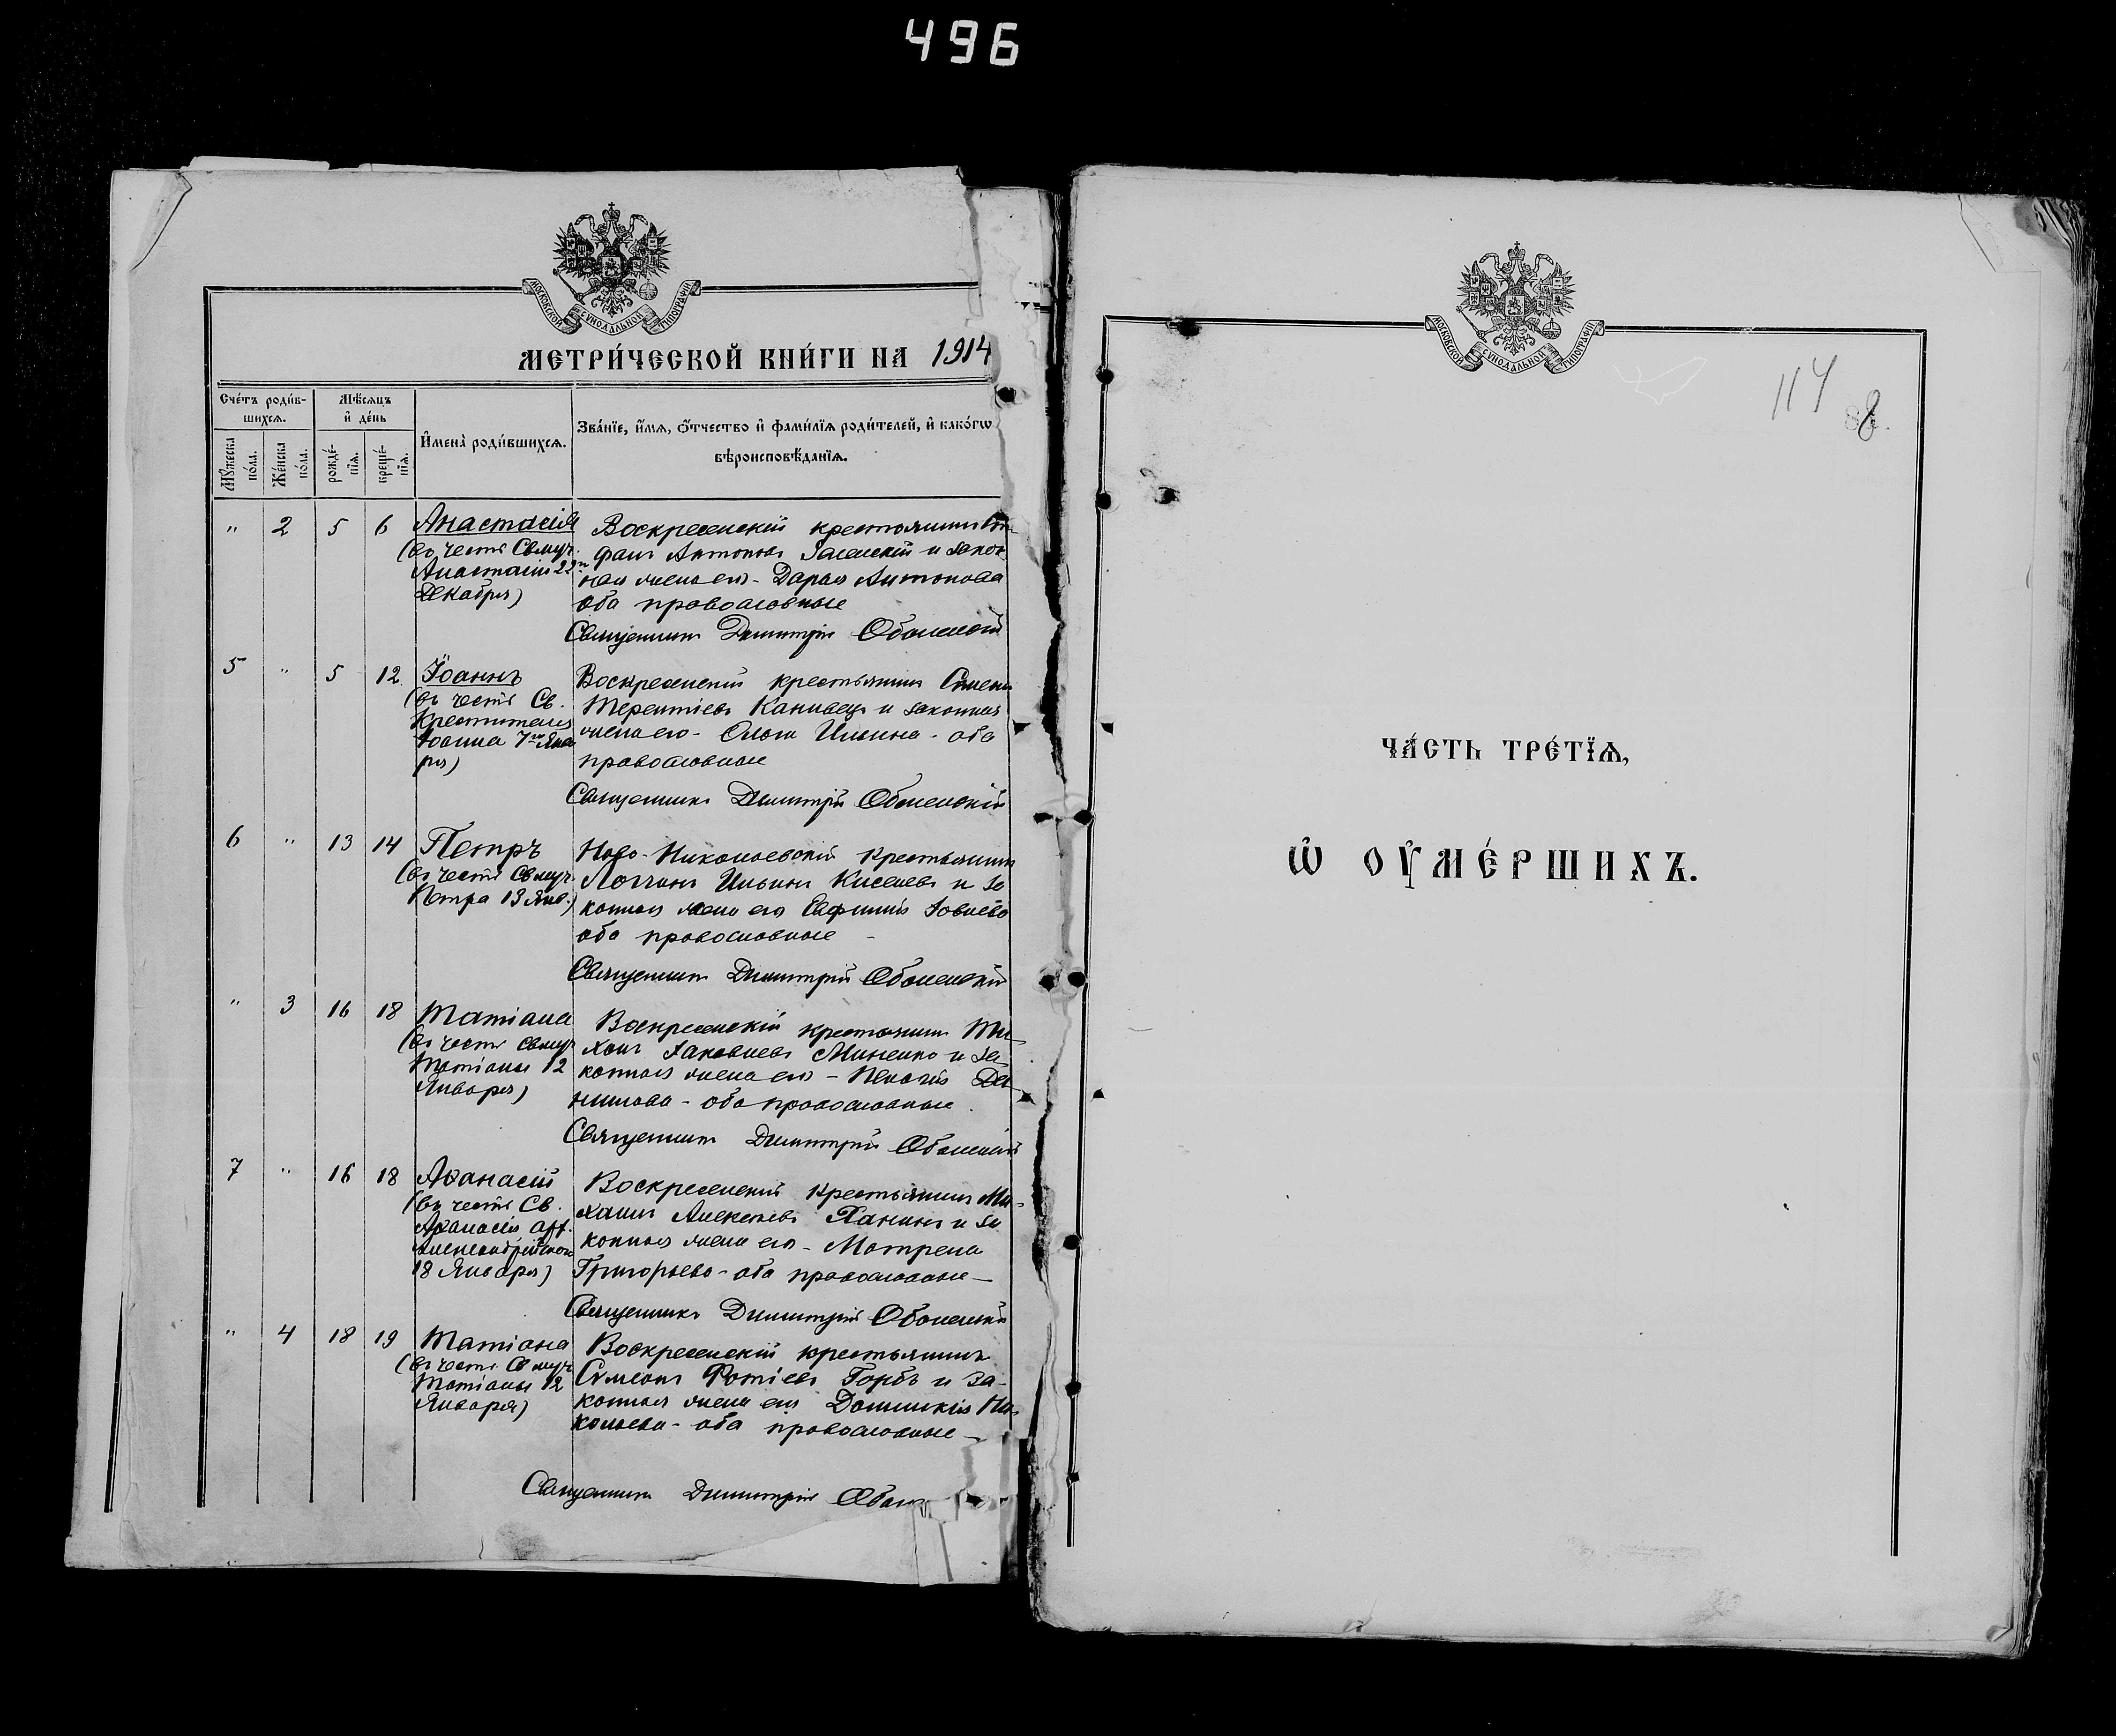 496
МОСКОВСКОЙ СѴНОДАЛЬНОЙ ТИПОГРАФІИ
МЕТРИ́ЧЕСКОЙ КНИ́ГИ НА 1914
Сче́тъ роди́в-
шихсѧ.
Мѣ́сѧцъ
и҆ де́нь
И҆мена̀ роди́вшихсѧ.
Зва́нїе, и҆́мѧ, ѻ҆́тчество и҆ фами́лїѧ роди́телей, и҆ како́гѡ
вѣроисповѣ́данїѧ.
Мꙋ́жеска
по́ла.
Же́нска
по́ла.
рожде́-
нїѧ.
креще́-
нїѧ.
" 2 5 6 Анастасія
(въ честь Св. муч.
Анастасіи 22го
Декабря)
Воскресенскій крестьянинъ Сте-
фанъ Антоновъ и закон
ная жена его - Дарья Антонова
оба православные
Священникъ Димитрій Оболенскій
5 " 5 12 Іоаннъ
(въ честь Св.
Крестителя
Іоанна 7го Янва
ря)
Воскресенскій крестьянинъ Симеонъ
Терентіевъ Канивецъ и законная
жена его - Ольга Ильина - оба
православные
Священникъ Димитрій Оболенскій
6 " 13 14 Петръ
(въ честь Св. муч.
Петра 13 Янв.)
Ново-Николаевскій крестьянинъ
Логгинъ Ильинъ Киселевъ и за
конная жена его Евфимія Іовлева
оба православные -
Священникъ Димитрій Оболенскій
" 3 16 18 Татіана
(въ честь Св. муч
Татіаны 12
Января)
Воскресенскій крестьянинъ Ти-
хонъ Іаковлевъ Миненко и за
конная жена его - Пелагія Да
нилова - оба православные.
Священникъ Димитрій Оболенскій
7 " 16 18 Аѳанасій
(въ честь Св.
Аѳанасія арх.
Александрійскаго
18 Января)
Воскресенскій крестьянинъ Ми-
хаилъ Алексѣевъ Ханинъ и за
конная жена его - Матрена
Григорьева - оба православные -
Священникъ Димитрій Оболенскій
" 4 18 19 Татіана
(въ честь Св муч
Татіаны 12
Января)
Воскресенскій крестьянинъ
Сѵмеонъ Фотіевъ Горбъ и за-
конная жена его Домникія Ни-
колаева - оба православные -
Священникъ Димитрій Обол
МОСКОВСКОЙ СѴНОДАЛЬНОЙ ТИПОГРАФІИ
114
8
ЧА́СТЬ ТРЕ́ТЇѦ,
Ѡ҆ ОУ҆МЕ́РШИХЪ.